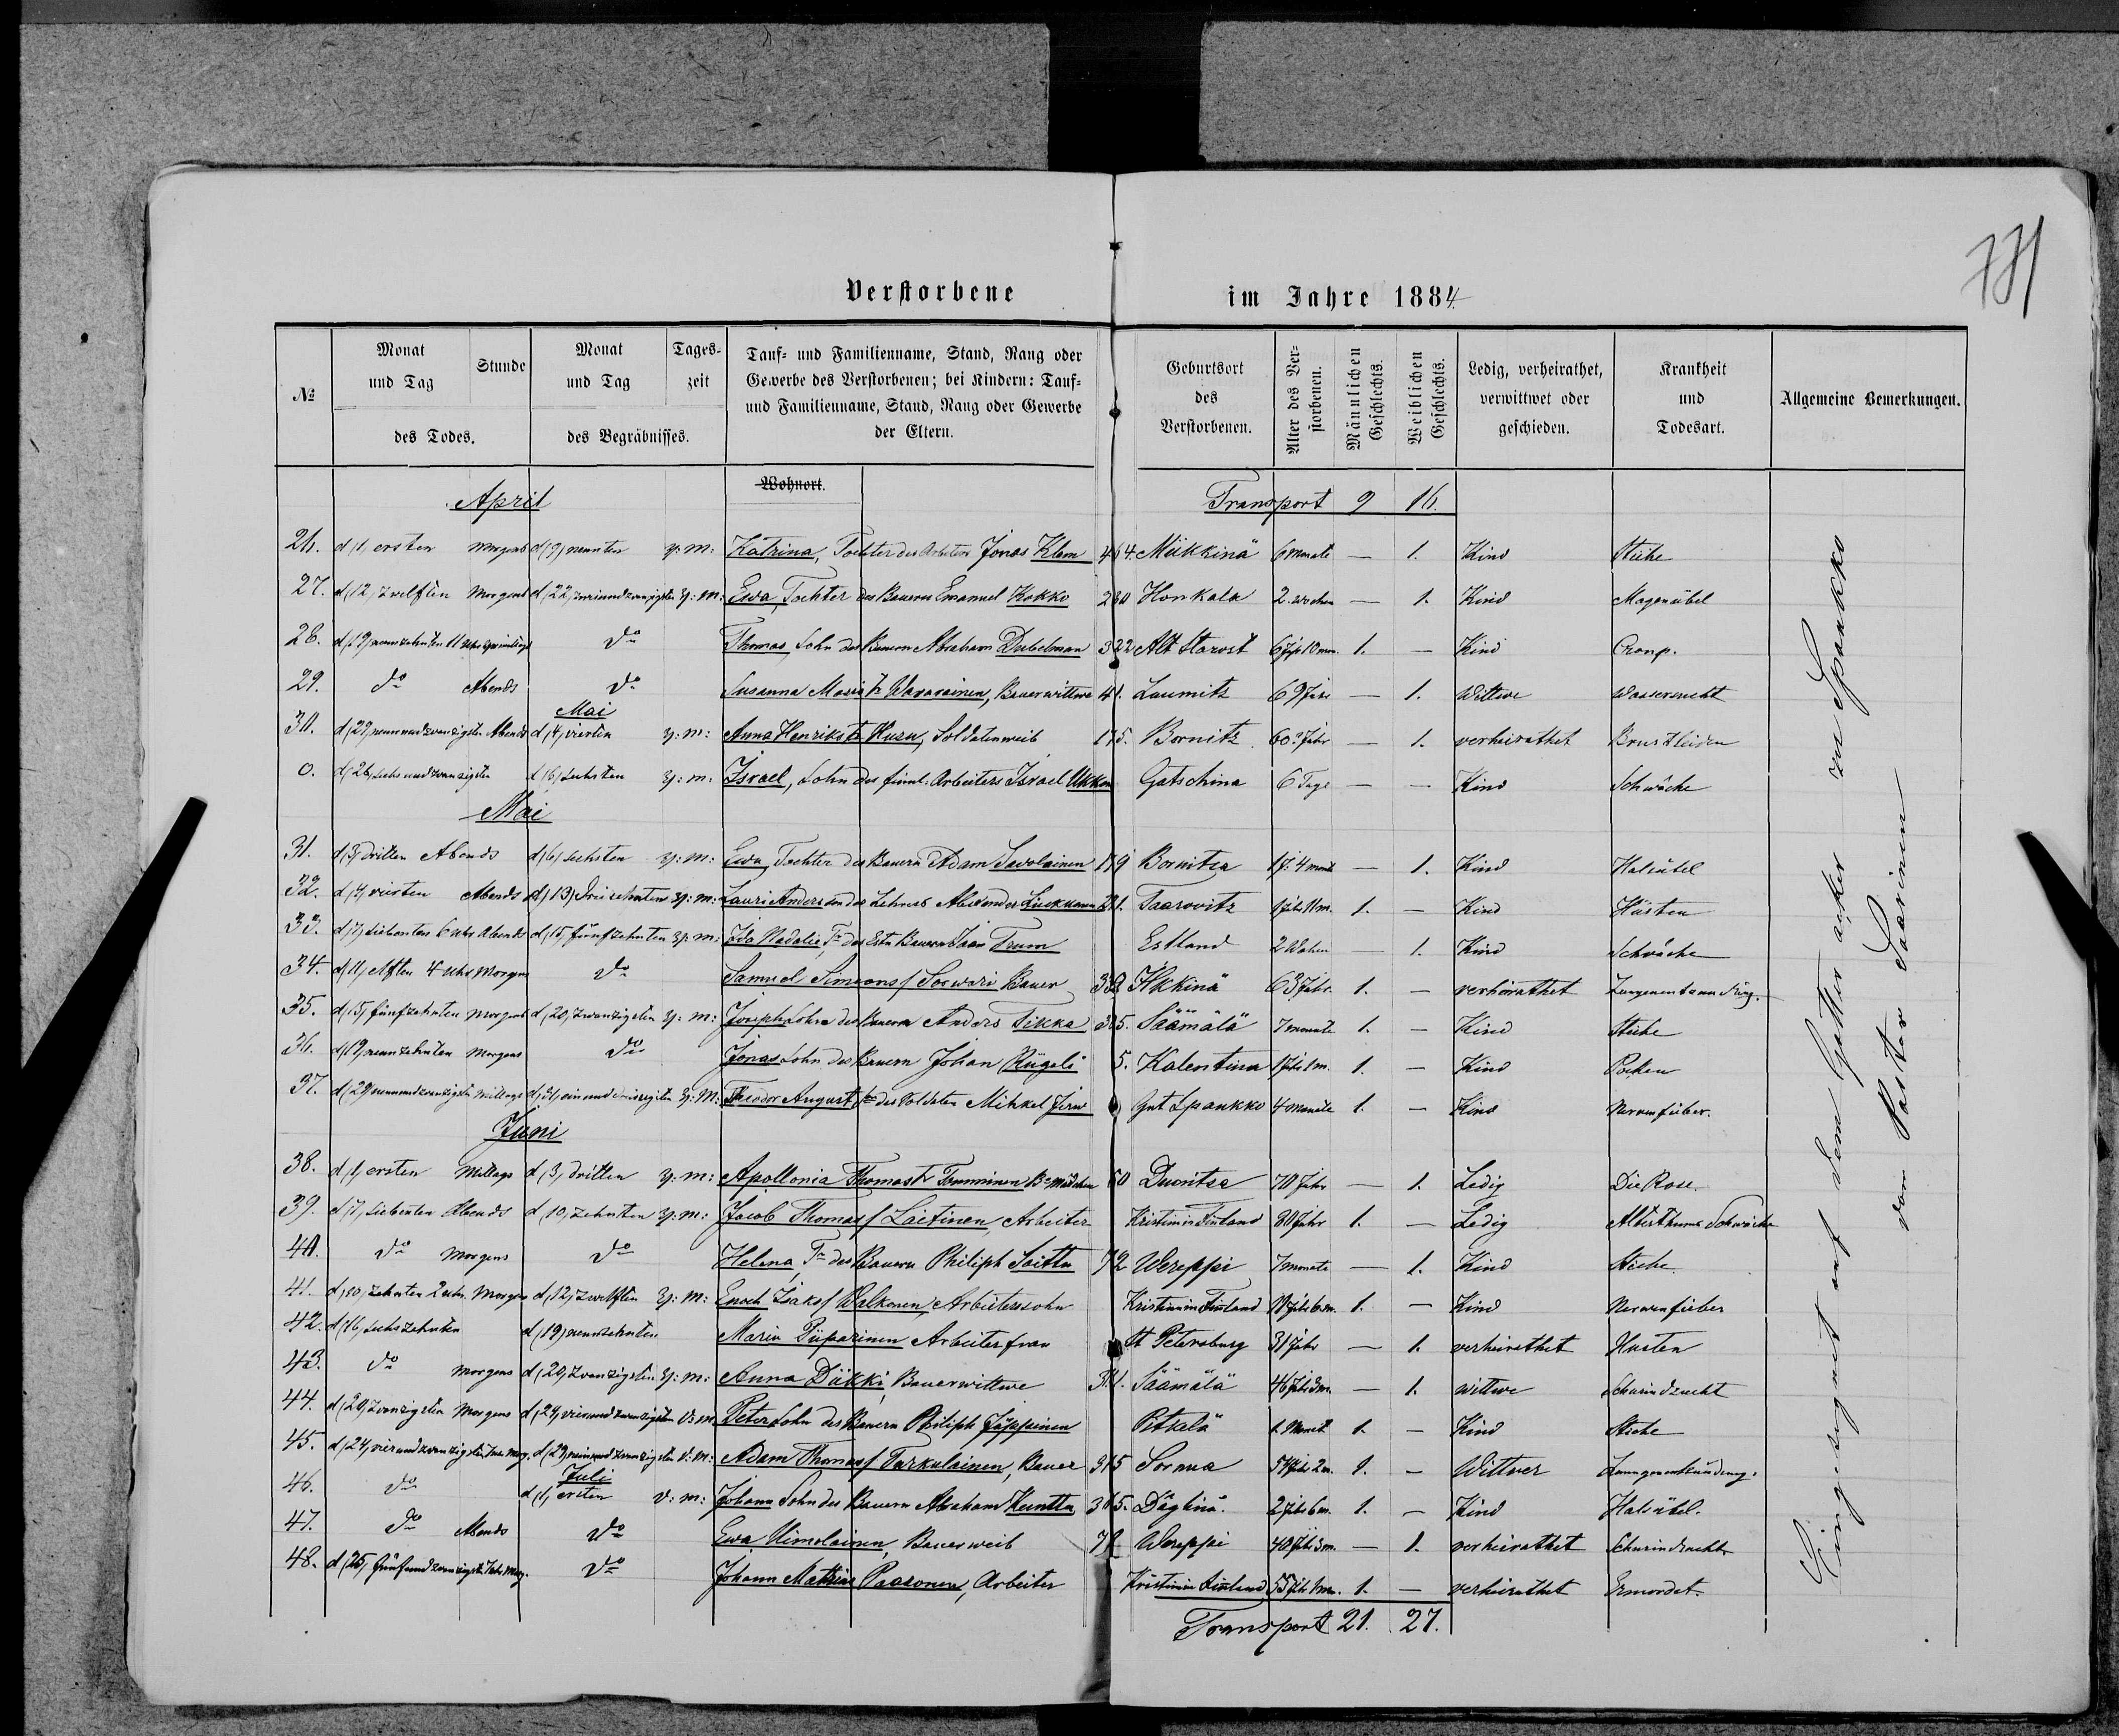 781
Verstorbene im Jahre 1884.
№ Monat und Tag Stunde des Todes. Monat und Tag Tages-zeit des Begräbnisses. Tauf- und Familienname, Stand, Rang oder Gewerbe des Verstorbenen; bei Kindern: Tauf- und Familienname, Stand, Rang oder Gewerbe der Eltern. Geburtsort des Verstorbenen. Alter des Verstorbenen. Männlichen Geschlechts. Weiblichen Geschlechts. Ledig, verheirathet, verwittwet oder geschieden. Krankheit und Todesart. Allgemeine Bemerkungen.
Wohnort.
April Transport 9 16.
26. d (1) ersten Morgens d (9) neunten Katrina, Tochter des Arbeiters Jonas Klem 464. Mükkinä 6 Monate — 1. Kind Stiche
27. d (12) zwelften Morgens d (22) zweiundzwanzigsten Ewa, Tochter des Bauern Emanuel Kokko 280 Honkala 2 Wochen — 1. Kind Magenübel
28. d (19) neunzehnten 11 Uhr do Thomas, Sohn des Bauern Abraham Dubelman 322 Alt Starost 6 Jahr 10 mon. 1. — Kind Croup.
29. do Abends do Susanna Maria Wavarainen, Bauerwittwe 41. Laumitz 69 Jahr — 1. Wittwe Wassersucht
Mai
30. d (29) neunundzwanzigsten Abends d (4) vierten Anna Henrikstr Husu, Soldatenweib 175. Bornitz 60 Jahr — 1. verheirathet Brustleiden
0. d (26) sechsundzwanzigsten d (6) sechsten Israel, Sohn des finnl. Arbeiters Israel Ukkon Gatschina 6 Tage — — Kind Schwäche
Mai
31. d (3) dritten Abends d (6) sechsten Ewa, Tochter des Bauern Adam Savolainen 179 Bornitza 1 J. 4 monat — 1. Kind Halsübel
32. d (4) vierten Abends d (13) Dreizehnten Lauri Anders Son des Lehrers Alexander Luukkanen 21. Taarovitz 1 Jahr 11 m. 1. — Kind Husten
33. d (7) siebenten 6 Uhr Abends d (15) fünfzehnten Ida Nadalie, Tr des Estn Bauern Jaan Trum Estland 2 Wochen — 1. Kind Schwäche
34. d (11) elften 4 Uhr Morgens do Samuel Simeons/ Sorwari Bauer 332 Ikkinä 63 Jahr. 1. — verheirathet Lungenentzündung.
35. d (15) fünfzehnten Morgens d (20) Zwanzigsten Joseph Sohn des Bauern Anders Tikka 325. Säämälä 7 monate 1. — Kind Stiche
36. d (19) neunzehnten Morgens do Jonas Sohn des Bauern Johan Rügeli 5. Kalentina 1 Jahr 1 m. 1. — Kind Pocken
37. d (29) neunundzwanzigsten Mittags d (31) einunddreissigsten Theodor August, So des Soldaten Mihkel Jerw Gut Spankko 4 Monate 1. — Kind Nervenfieber.
Juni
38. d (1) ersten Mittags d (3) dritten Apollonia Thomastr Tomminen Br Mädchen 60 Duonitza 70 Jahr — 1. Ledig Die Rose.
39. d (7) siebenten Abends d (10) zehnten Jacob Thomas/ Laitinen, Arbeiter Kristina in Finland 80 Jahr 1. — Ledig Altersthums Schwäche
40. do Morgens do Helena, Tr des Bauern Philiph Saitta 72 Wereppi 7 monate — 1. Kind Stiche
41. d (10) zehnten 2 Uhr Morgens d (12) Zwelften Enoch Isaks/ Walkonen, Arbeiterssohn Kristina in Finland 1. — Kind Nervenfieber
42. d (16) sechszehnten d (19) neunzehnten Maria Piiparinen Arbeitersfrau St Petersburg 31 Jahr — 1. verheirathet Husten
43. do Morgens d (20) Zwanzigsten Anna Däkki Bauerwittwe Säämälä 46 Jahr 3 m. — 1. wittwe Schwindsucht
44. d (20) Zwanzigsten Morgens d (24) vierundzwanzigsten V: m Peter Sohn des Bauern Philiph Jäppinen Pitkälä 1 Monat 1. — Kind Stiche
45. d (24) vierundzwanzigsten d (29) neunundzwanzigsten V: m: Adam Thomas/ Tarkulainen, Bauer 315 Sornua 54 Jahr 2 m. 1. — Wittwer Lungenentzündung.
Juli
46. do d (1) ersten V: m: Johann Sohn des Bauern Abraham Kuntta 365. Däglinä 2 Jahr 6 m. 1. — Kind Halsübel.
47. do Abends do Ewa Uimolainen, Bauersweib 72 Wereppi 40 Jahr 3 m. — 1. verheirathet Schwindsucht
48. d (25) fünfundzwanzigsten do Johann Mathias Paasonen, Arbeiter Kristina in Finland 55 Jahr 1 m. 1. — verheirathet Ermordet.
Transport 21. 27.
Eingesegnet auf dem Gottes acker zu Spankko
von Pastor Saarinen